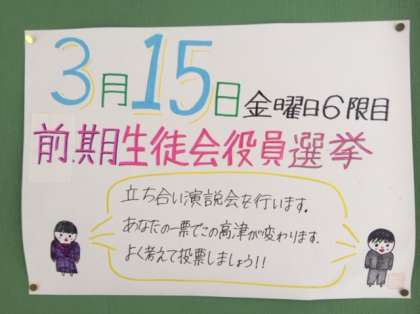 3月15日金曜日6限目
前期生徒会役員選挙
立ち合い演説会を行います。
あなたの一票でこの高津が変わります。
よく考えて投票しましょう!!